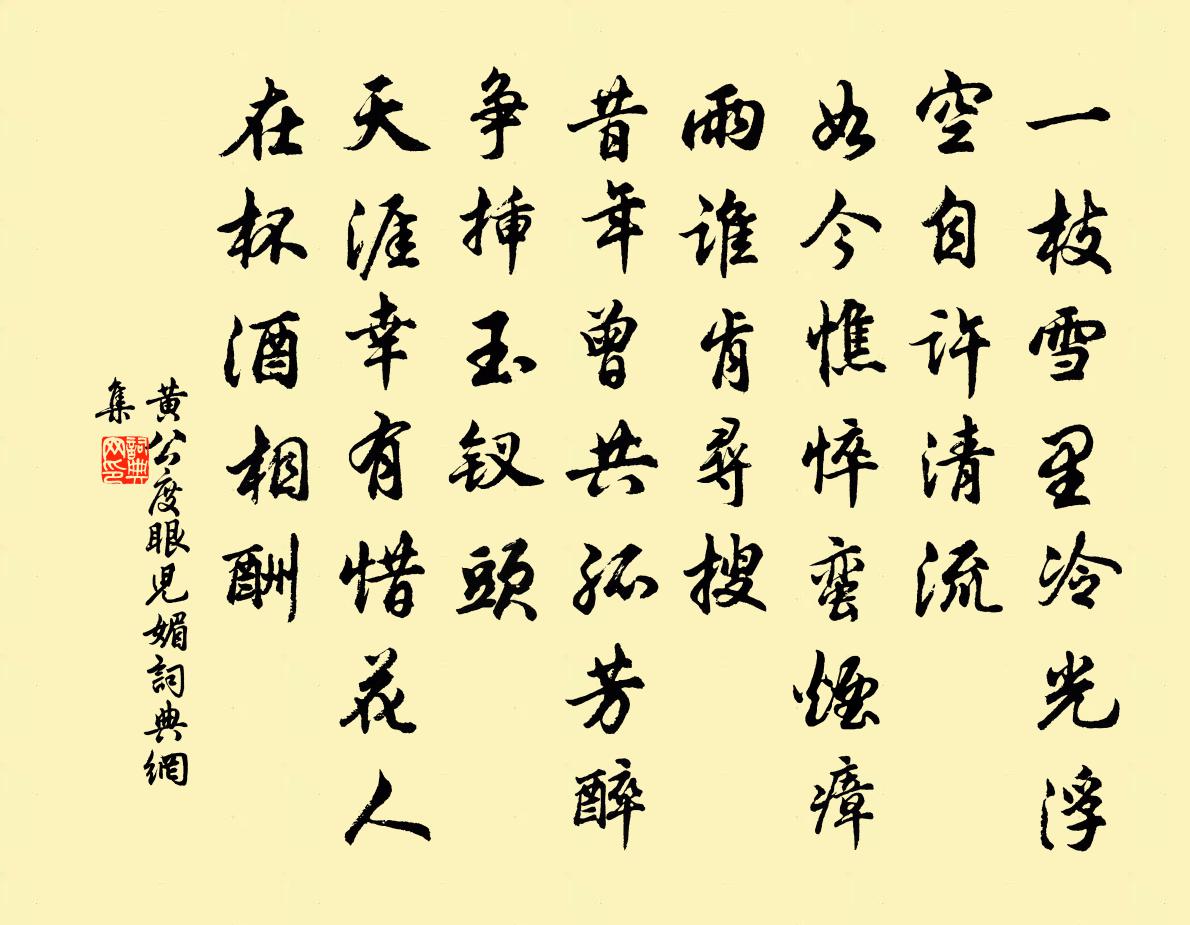 一枝雪里冷光浮
空自许清流
如今憔悴蛮煙瘴
雨谁肯尋搜
昔年曾共孤芳醉
争插玉钗頭
天涯幸有惜花人
在杯酒相酬
黄公度眼児媚詞典網
集
詞典網印